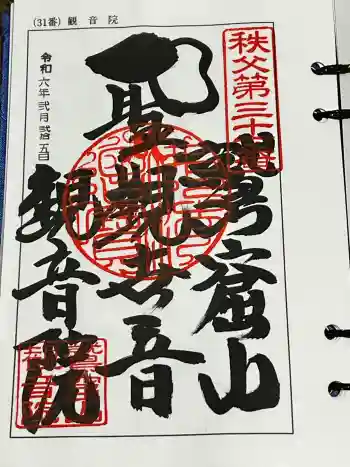 (31番) 観音院
秩父第三十一番
鷲窟山
聖觀世音
觀音院
令和六年弐月拾五日